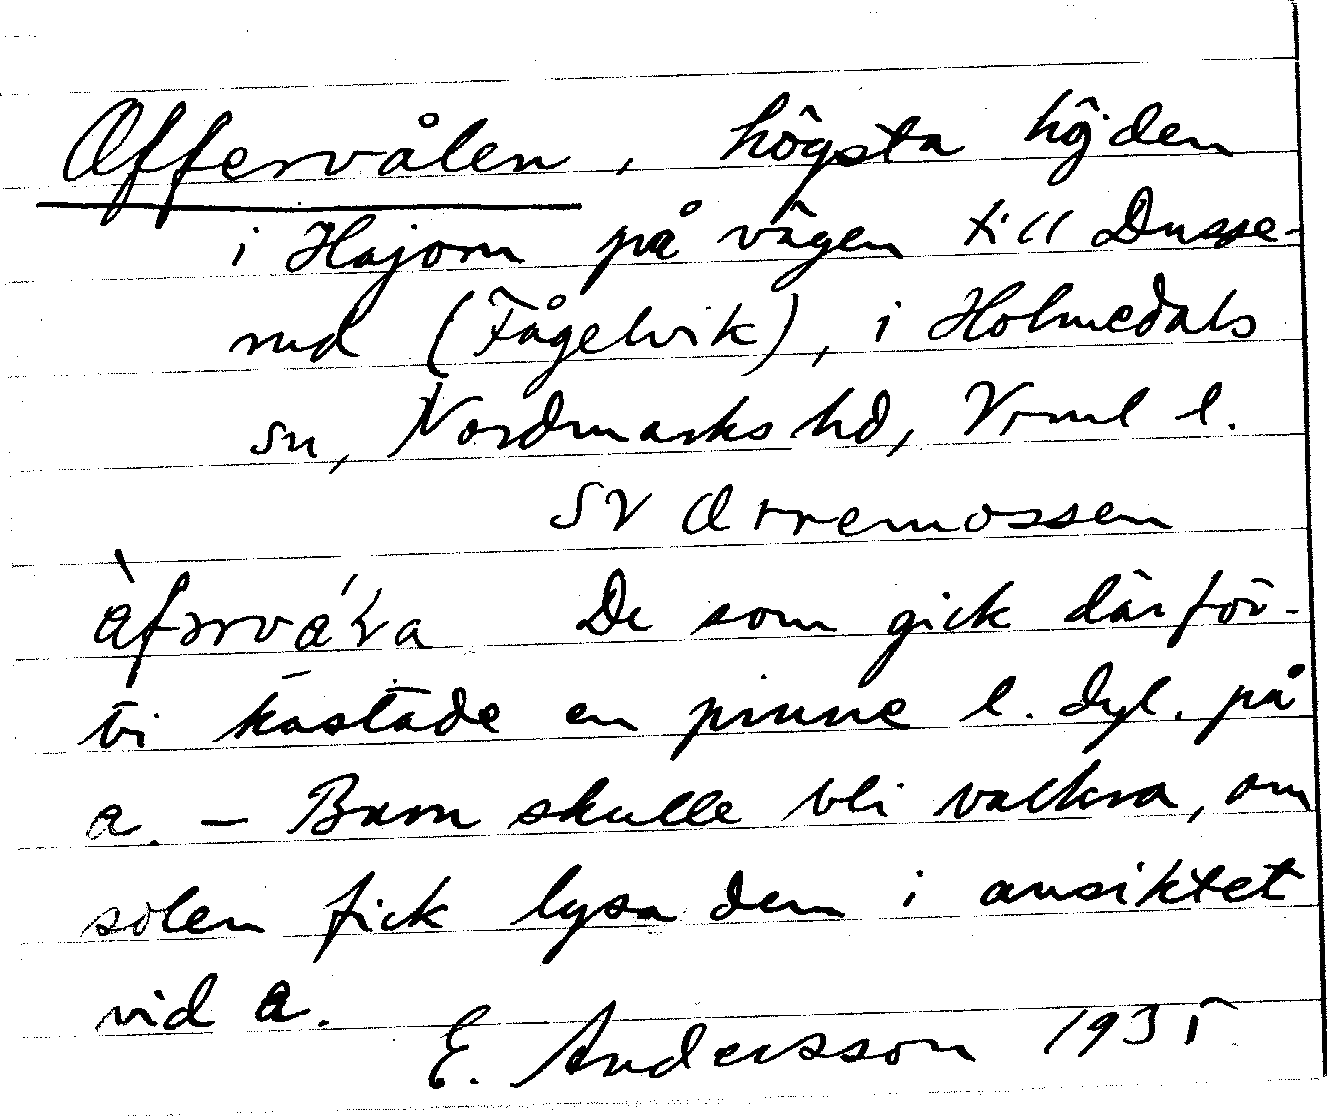 Offervålen, högsta höjden
i Hajom på vägen till Dusse-
rud (Fågelvik), i Holmedals
sn, Nordmarks hd, Verml l.
SV Orremossen
De som gick därför-
bi kastade en pinne l. dyl. på
a. - Barn skulle bli vackra, om
solen fick lysa dem i ansiktet
vid a.
E. Andersson 1935